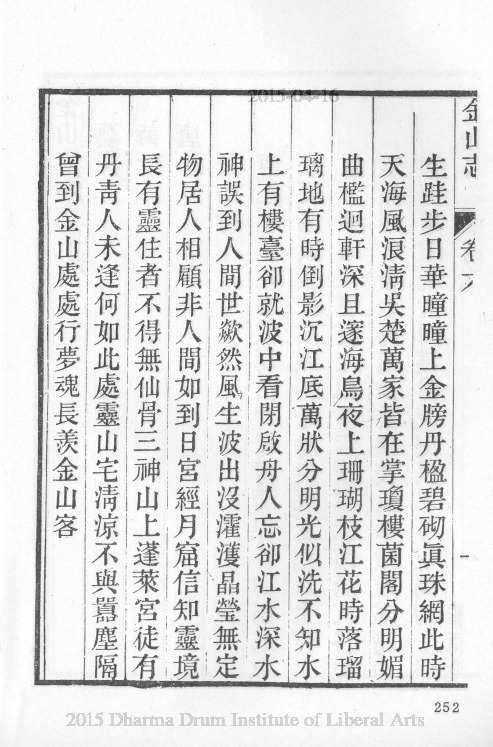 2015-04-16
金山志
卷六
生跬步日華曈曈上金牓丹楹碧砌眞珠網此時
天海風浪淸吳楚萬家皆在掌瓊樓菌閣分明媚
曲檻迴軒深且邃海鳥夜上珊瑚枝江花時落瑠
璃地有時倒影沉江底萬狀分明光似洗不知水
上有樓臺卻就波中看閉啟舟人忘卻江水深水
神誤到人間世歘然風生波出沒瀖濩晶瑩無定
物居人相顧非人間如到日宮經月窟信知靈境
長有靈住者不得無仙骨三神山上蓬萊宮徒有
丹靑人未逢何如此處靈山宅淸涼不與囂塵隔
曾到金山處處行夢魂長羨金山客
一
252
2015 Dharma Drum Institute of Liberal Arts